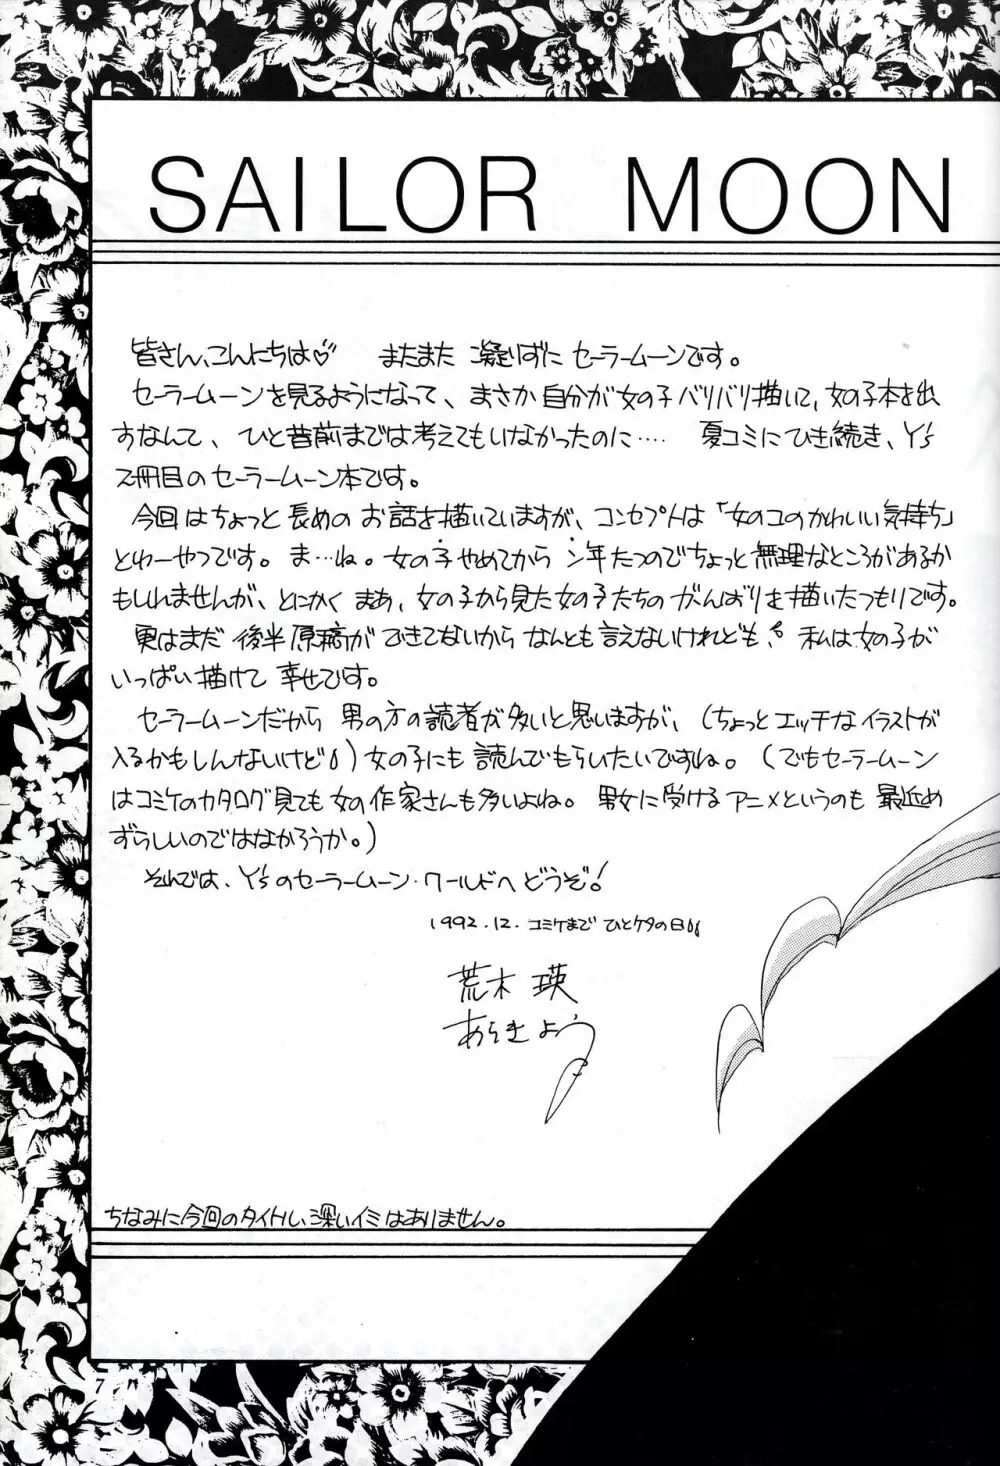 SAILOR MOON
皆さん、こんにちは♡ またまた 凝りずに セーラームーンです。
セーラームーンを見るようになって、まさか自分が女の子バリバリ描いて、女の子本を出
すなんて、ひと昔前までは考えてもいなかったのに‥‥ 夏コミにひき続き、Y's
2冊目のセーラームーン本です。
今回はちょっと長めのお話を描いていますが、コンセプトは「女のコのかわいい気持ち」
とゆーやつです。ま…ね。女の子やめてから ン年たつのでちょっと無理なところがあるか
もしれませんが、とにかく まあ、女の子から見た女の子たちのがんばりを描いたつもりです。
実はまだ 後半原稿ができてないから なんとも言えないけれども、私は女の子が
いっぱい描けて 幸せです。
セーラームーンだから 男の方の読者が多いと思いますが、(ちょっとエッチなイラストが
入るかもしんないけど)女の子にも 読んでもらいたいですね。(でもセーラームーン
はコミケのカタログ見ても 女の作家さんも多いよね。男女に受けるアニメというのも 最近め
ずらしいのではなかろうか。)
それでは、Y'sのセーラームーン・ワールドへ どうぞ!
1992.12. コミケまで ひとケタの日
荒木 瑛
あらき よう
ちなみに今回のタイトル、深いイミはありません。
7